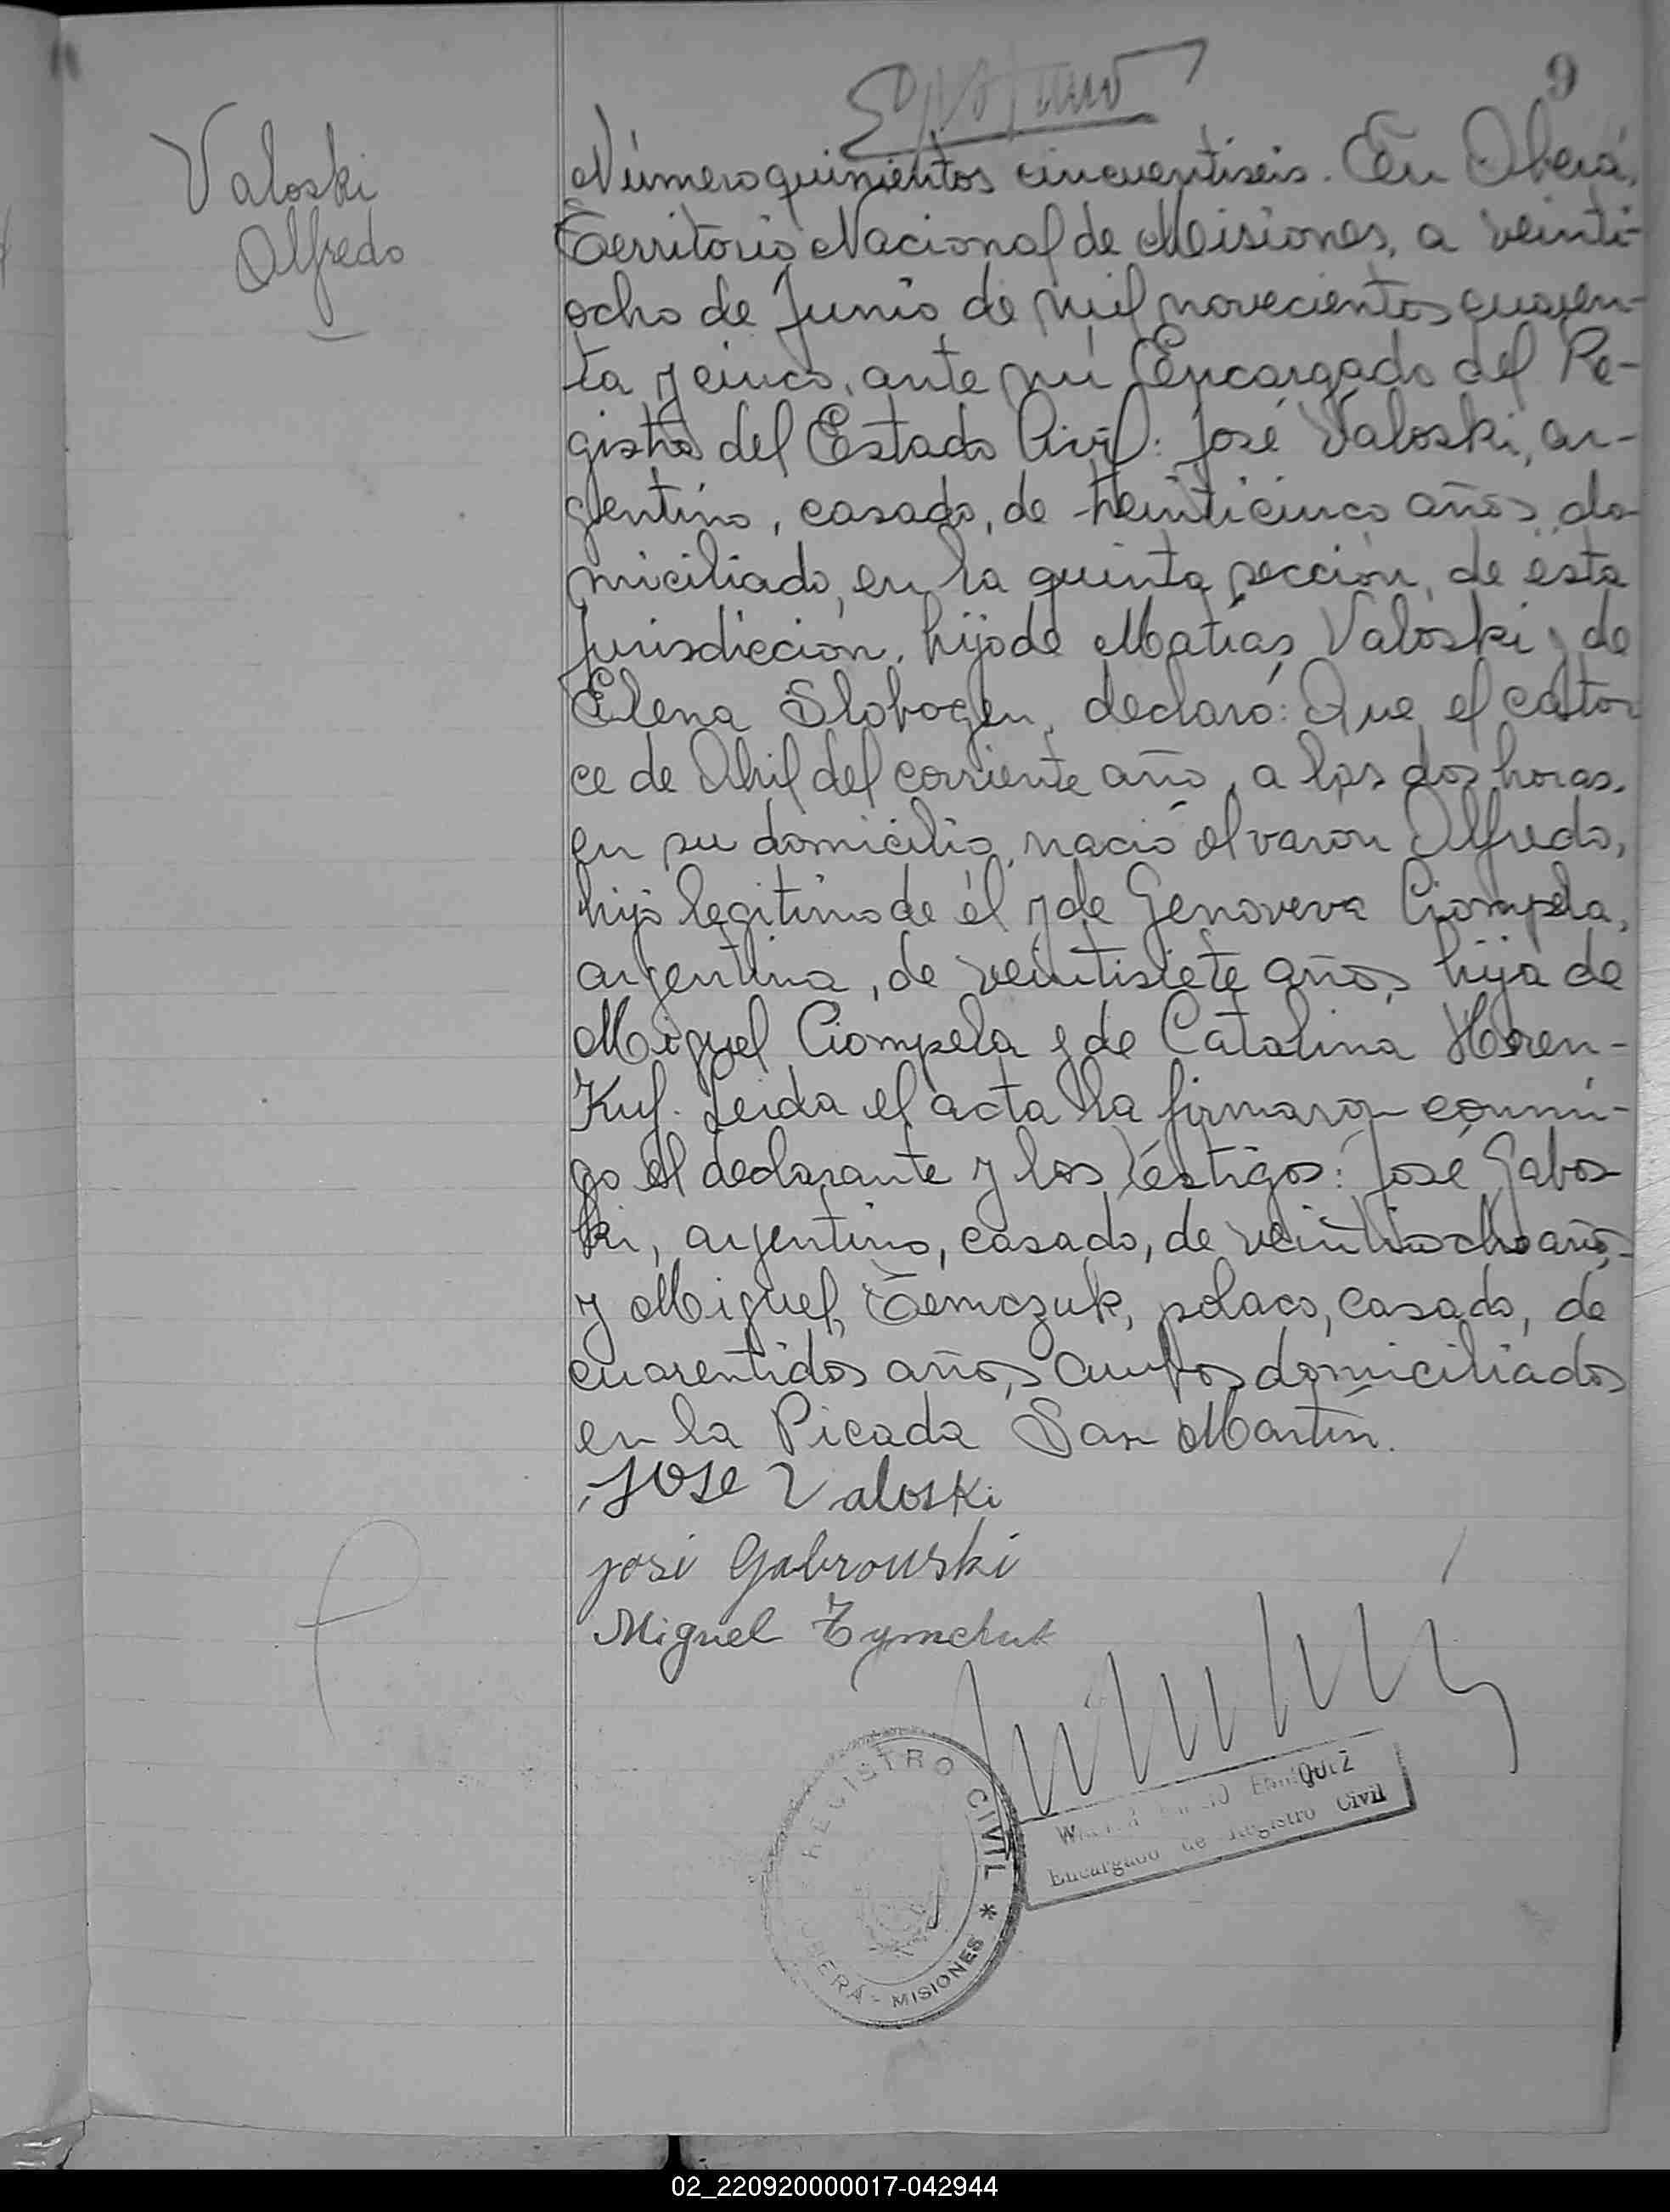 9
Valoski
Alfredo
Número quinientos cincuentiseis. En Oberá,
Territorio Nacional de Misiones, a veinti-
ocho de Junio de mil novecientos cuaren-
ta y cinco, ante mí Encargado del Re-
gistro del Estado Civil: José Valoski, ar-
gentino, casado, de veinticinco años, do-
miciliado, en la quinta sección, de ésta
Jurisdicción, hijo de Matías Valoski y de
Elena Slobogen, declaró: Que el cator-
ce de Abril del corriente año, a las dos horas,
en su domicilio, nació el varon Alfredo,
hijo legitimo de él y de Genoveva Ciompela,
argentina, de veintisiete años, hija de
Miguel Ciompela y de Catalina Horen-
Kuf. Leida el acta la firmaron conmi-
go el declarante y los testigos: José Gabos-
ki, argentino, casado, de veintiocho años,
y Miguel Temczuk, polaco, casado, de
cuarentidos años, ambos domiciliados
en la Picada San Martín.
Jose Valoski
josé Gabrouski
Miguel Tymchuk
REGISTRO CIVIL * OBERÁ - MISIONES
Encargado de Registro Civil
02_220920000017-042944